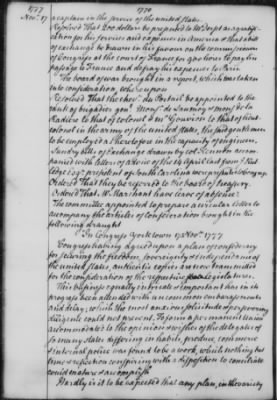 1777
1770
Nov. 17
a captain in the service of the united states.
Resolved That 600 dollars be prepaid to Mr. as a gratifi-
cation for his services and expences in America & that a bill
of exchange be drawn in his favour on the commissioners
of Congress at the court of France for 400 livres to pay his
passage to France and defray his expences to Paris
The board of war brought in a report, which was taken
into consideration, whereupon
Resolved That the chevr. du Portail be appointed to the
rank of brigadier genl. Monsr. de Launoy & Monsr. de la
Radiere to that of colonel & Mr. Gouvion to that of lieut.
colonel in the army of the united states, the said gentlemen
to be employed as heretofore in the capacity of engineers.
Sundry bills of exchange drawn by col. accom-
panied with letters of advice of the 14 April last from J Rut-
ledge esqr. president of South Carolina were laid before congress
Ordered That they be referred to the board of treasury.
Ordered That Mr. Marchant have leave of absence
The committee appointed to prepare a circular letter to
accompany the articles of confederation brought in the
following draught
In Congress York town 17 Nov. 1777
Congress having agreed upon a plan of confederacy
for securing the freedom, sovereignty & independence of
the united states, authentic copies are now transmitted
for the consideration of the respective legislatures.
This business equally intricate & important has in its
progress been attended with uncommon embarrassments
and delay, which the most anxious solicitude & persevering
diligence could not prevent. To form a permanent union
accommodated to the opinion & wishes of the delegates of
so many states differing in habits, produce, commerce
& internal police was found to be a work, which nothing but
time & reflection conspiring with a disposition to conciliate
could mature & accomplish
Hardly is it to be expected that any plan, in the variety